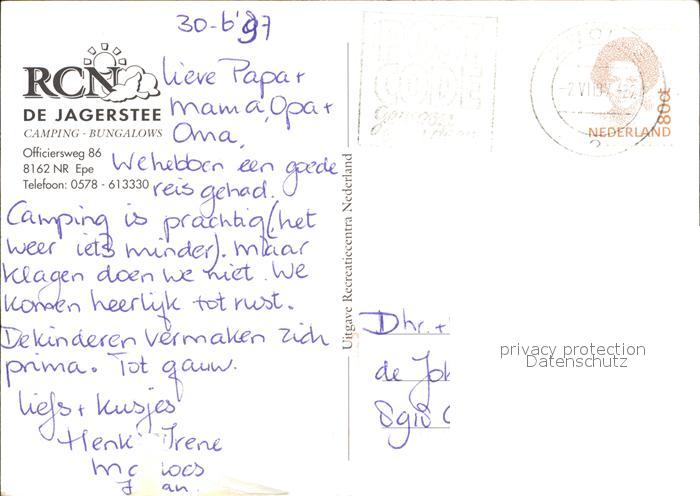 30-6'97
RCN
DE JAGERSTEE
CAMPING - BUNGALOWS
Officiersweg 86
8162 NR Epe
Telefoon: 0578 - 613330
Lieve Papa +
mama, Opa +
Oma,
We hebben een goede
reis gehad.
Camping is prachtig (het
weer iets minder). Maar
klagen doen we niet. We
komen heerlijk tot rust.
De kinderen vermaken zich
prima. Tot gauw.
Liefs + kusjes
Henk Irene
Uitgave Recreatiecentra Nederland
NEDERLAND
80ct
Dhr. +
de
privacy protection
Datenschutz